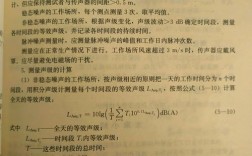 扦，应保持测试者与传声器的间距>0.5 m。
稳态噪声的工作场所，每个测点测量3次，取平均值。
非稳态噪声的工作场所，根据声级变化，声级波动>3 dB确定时间段，测量
各时间段的等效声级，并记录各时间段的持续时间。
脉冲噪声测量时，应测量脉冲噪声的峰值和工作日内脉冲次数。
测量应在正常生产情况下进行。工作场所风速超过3 m/s时，传声器应戴风
罩，应尽量避免电磁场的干扰。
3. 测量声级的计算
(1) 非稳态噪声的工作场所，按声级相近的原则把一天的工作时间分为n个时
间段，用积分声级计测量每个时间段的等效声级，按照公式(5-10)计算
全天的等效声级：
(5-10)
式中
——全天的等效声级；
——时间段内等效声级；
T——这些时间段的总时间；